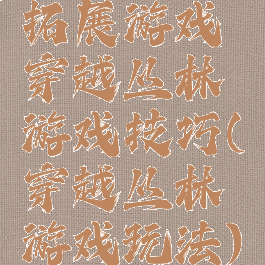 拓展游戏
穿越丛林
游戏技巧(
穿越丛林
游戏玩法)